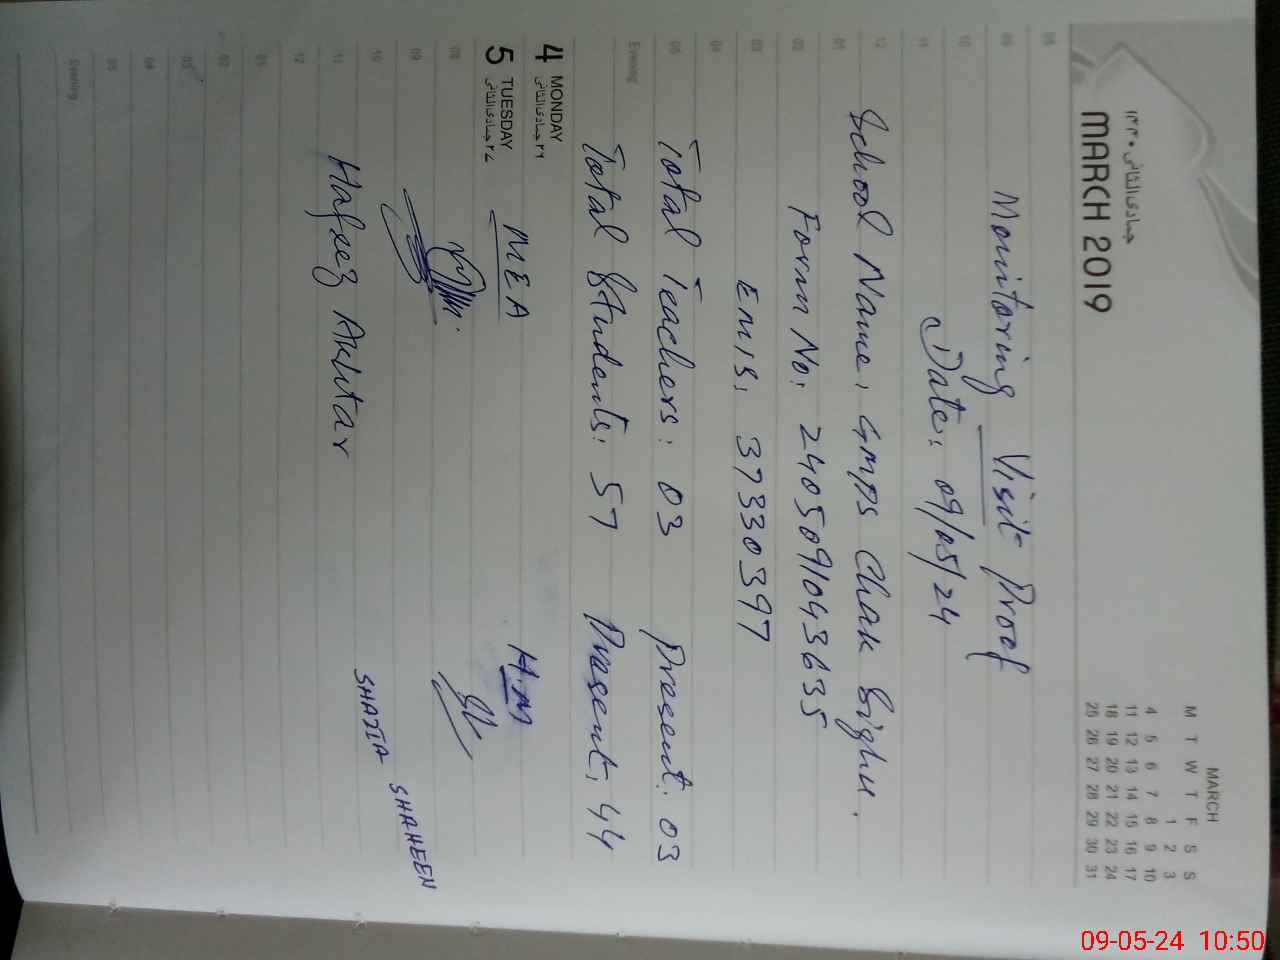 جمادی الثانی ۱۴۴۰
MARCH 2019
MARCH
M T W T F S S
1 2 3
4 5 6 7 8 9 10
11 12 13 14 15 16 17
18 19 20 21 22 23 24
25 26 27 28 29 30 31
08
09 Monitoring Visit Proof
10
11 Date: 09/05/24
12 School Name: GMPS Chak Bighu.
01
02 Form No: 2405091043635
03 EMIS: 37330397
04
05 Total Teachers: 03 Present: 03
Evening
Total Students: 57 Present: 44
4 MONDAY
جمادی الثانی ۲۶
5 TUESDAY
جمادی الثانی ۲۷
MEA H.M
08
09
10 SHAZIA SHAHEEN
11 Hafeez Akhtar
12
01
02
03
04
05
Evening
09-05-24 10:50